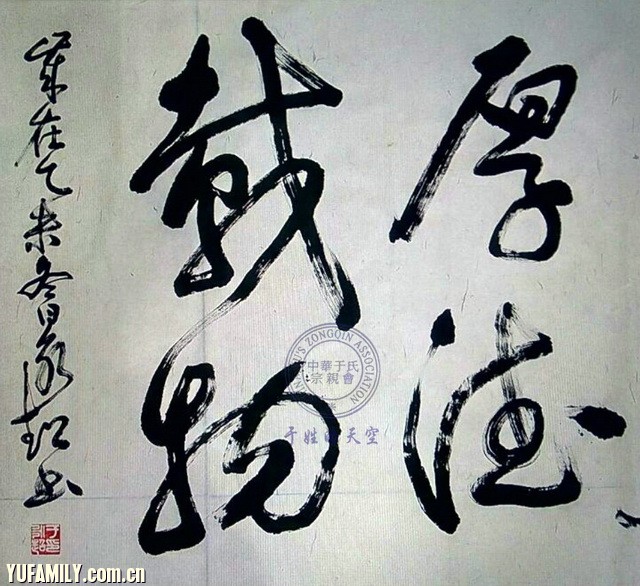 厚德
载物
岁在乙未冬日永超书
YU'S ZONGQIN ASSOCIATION
中華于氏
宗親會
于姓的天空
YUFAMILY.com.cn